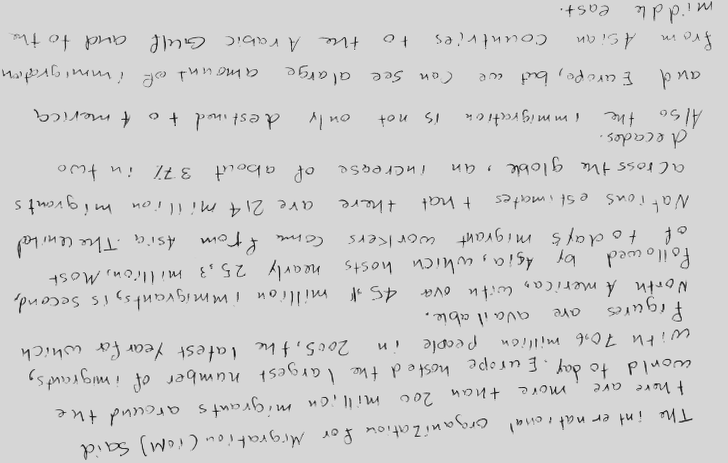 The international organization for Migration (IOM) said
there are more than 200 million migrants around the
world today. Europe hosted the largest number of imigrants,
with 70,6 million people in 2005, the latest year for which
figures are available.
North America, with over 45,1 million immigrants, is second,
followed by Asia, which hosts nearly 25,3 million, Most
of today's migrant workers come from Asia. The United
Nations estimates that there are 214 million migrants
across the globe, an increase of about 37% in two
decades.
Also the immigration is not only destined to America
and Europe, but we can see alarge amount of immigration
from Asian countries to the Arabic Gulf and to the
middle east.